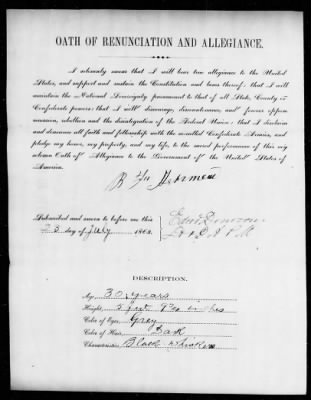 OATH OF RENUNCIATION AND ALLEGIANCE.
I solemnly swear that I will bear true allegiance to the United
States, and support and sustain the Constitution and laws thereof; that I will
maintain the National Sovereignty paramount to that of all State, County or
Confederate powers; that I will discourage, discountenance, and forever oppose
secession, rebellion and the disintegration of the Federal Union; that I disclaim
and denounce all faith and fellowship with the so-called Confederate Armies, and
pledge my honor, my property, and my life, to the sacred performance of this my
solemn Oath of Allegiance to the Government of the United States of
America.
Subscribed and sworn to before me this
23 day of July 186
DESCRIPTION.
Age, 30 years
Height, 5 feet inches
Color of Eyes, Gray
Color of Hair, Dark
Characteristics, Black Whiskers